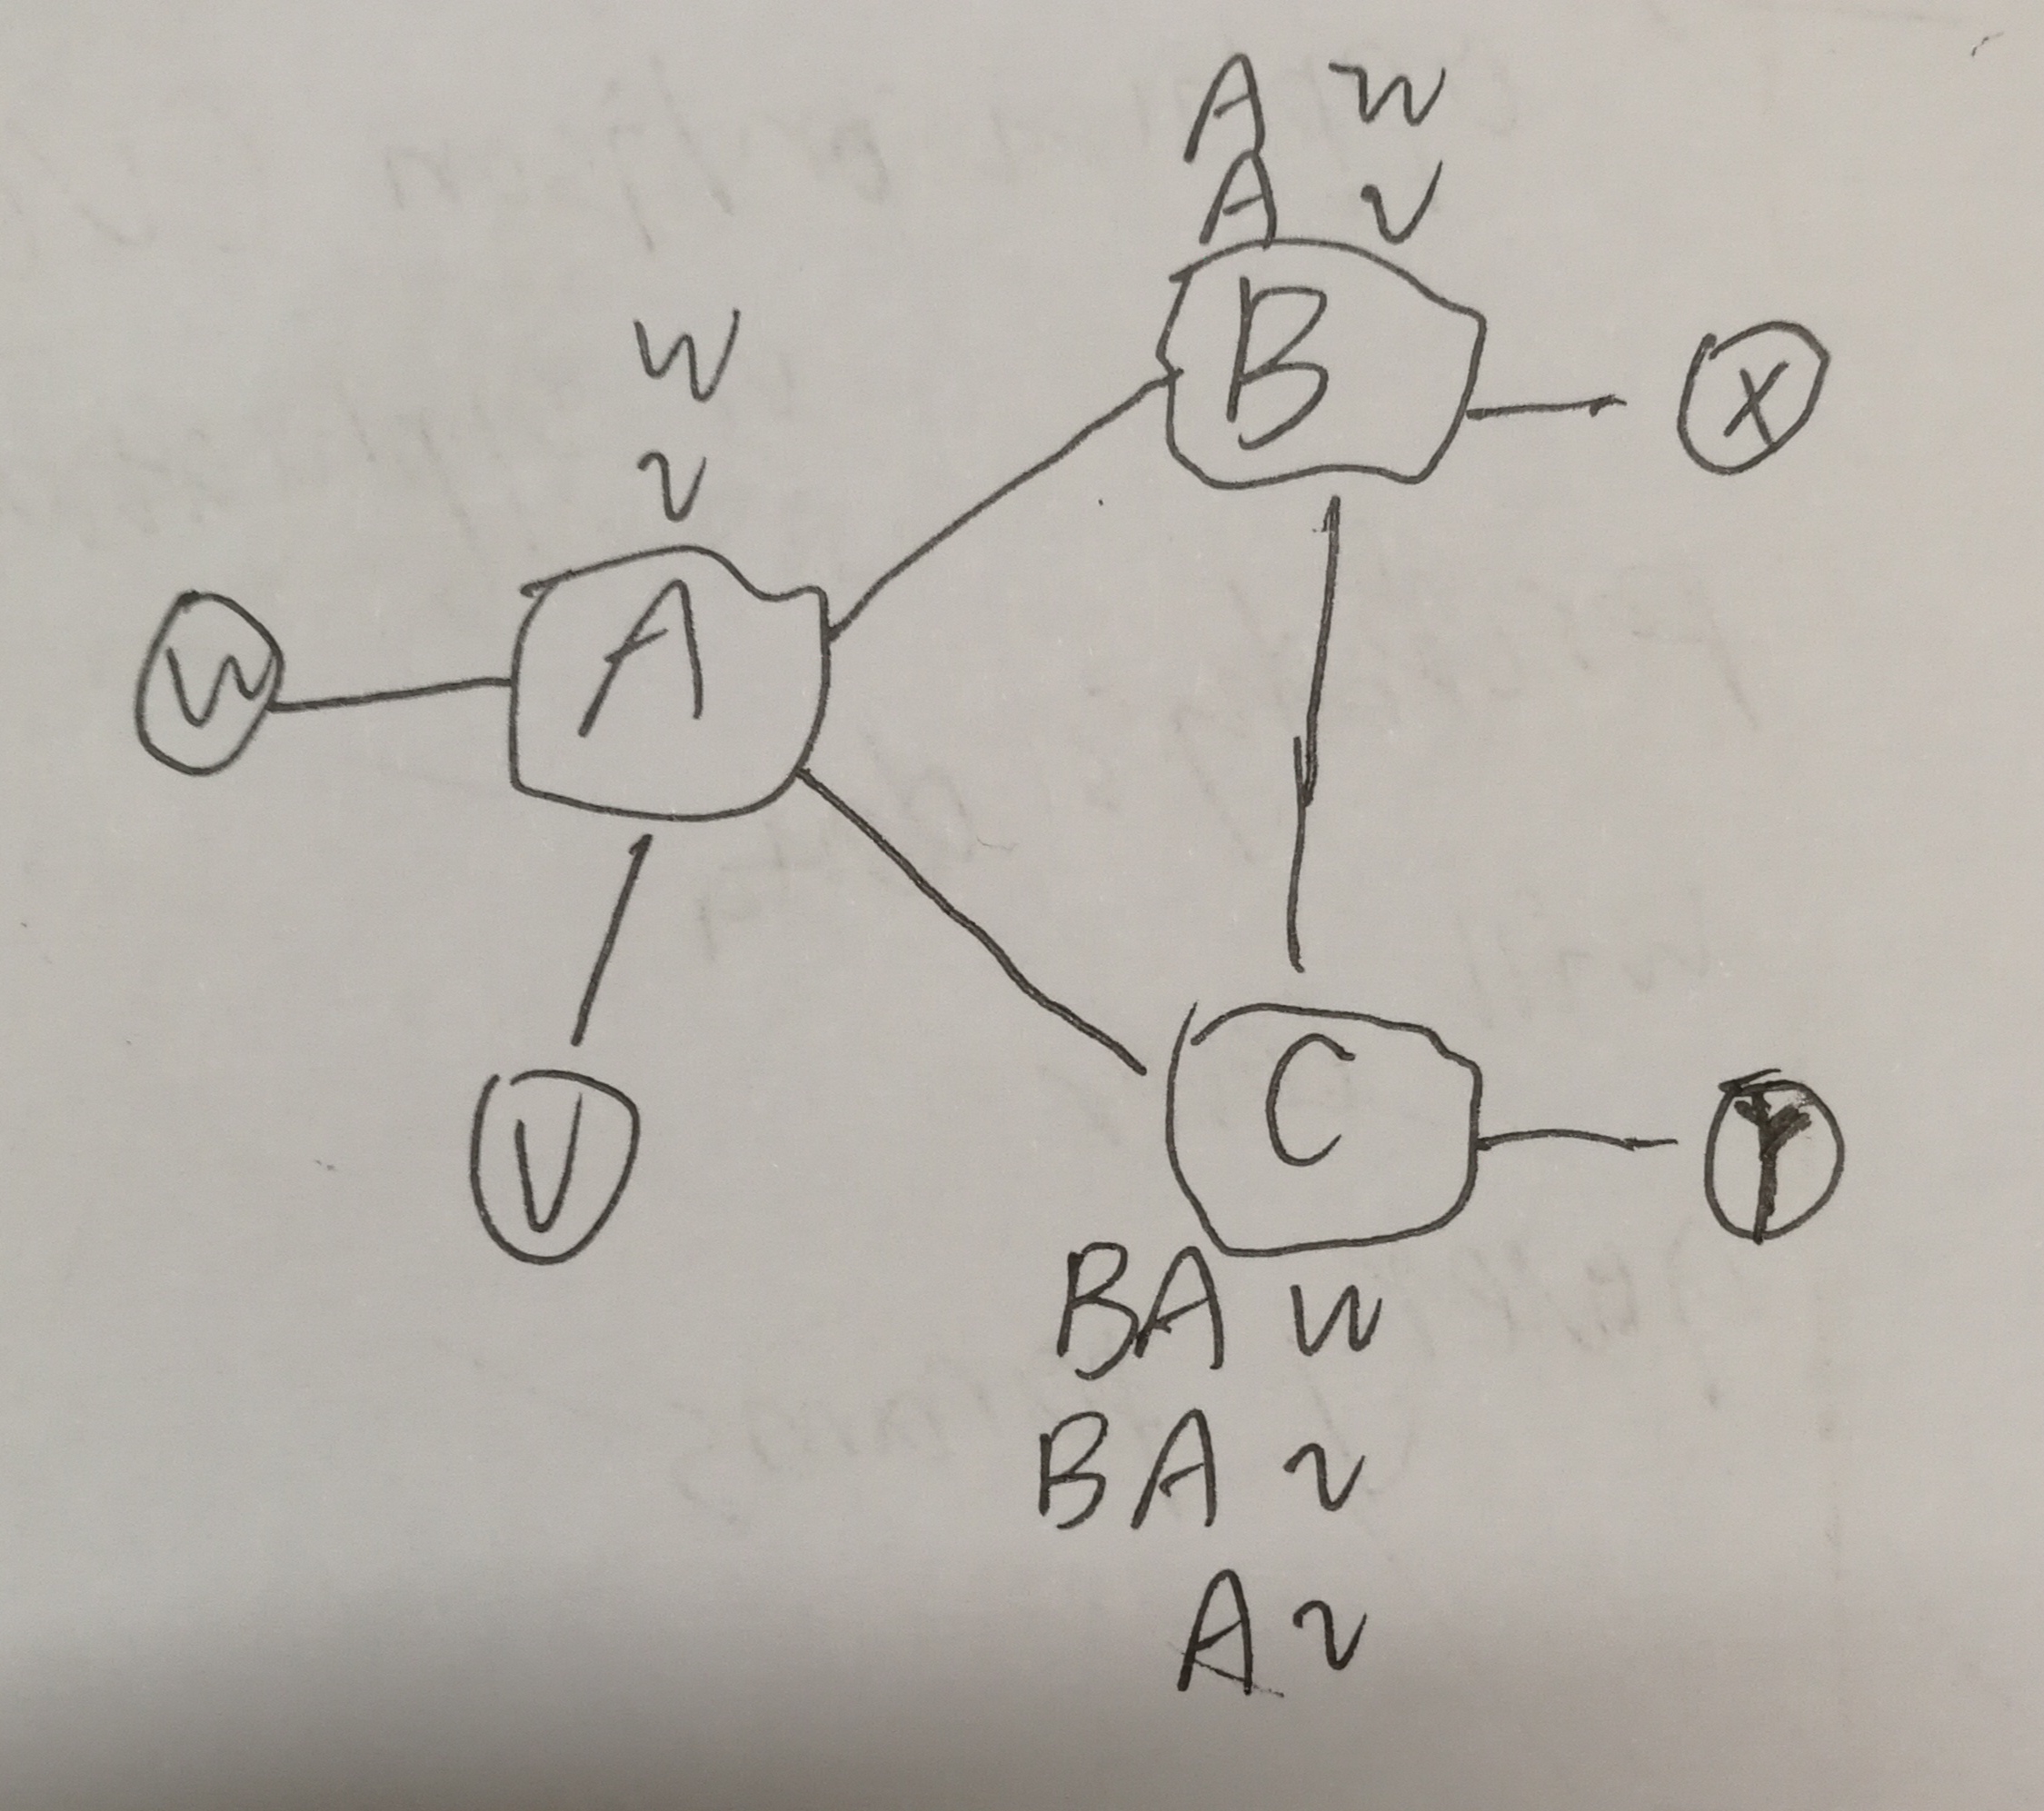 A W
A V
B
X
W
V
A
W
V
C
Y
BA W
BA V
A V